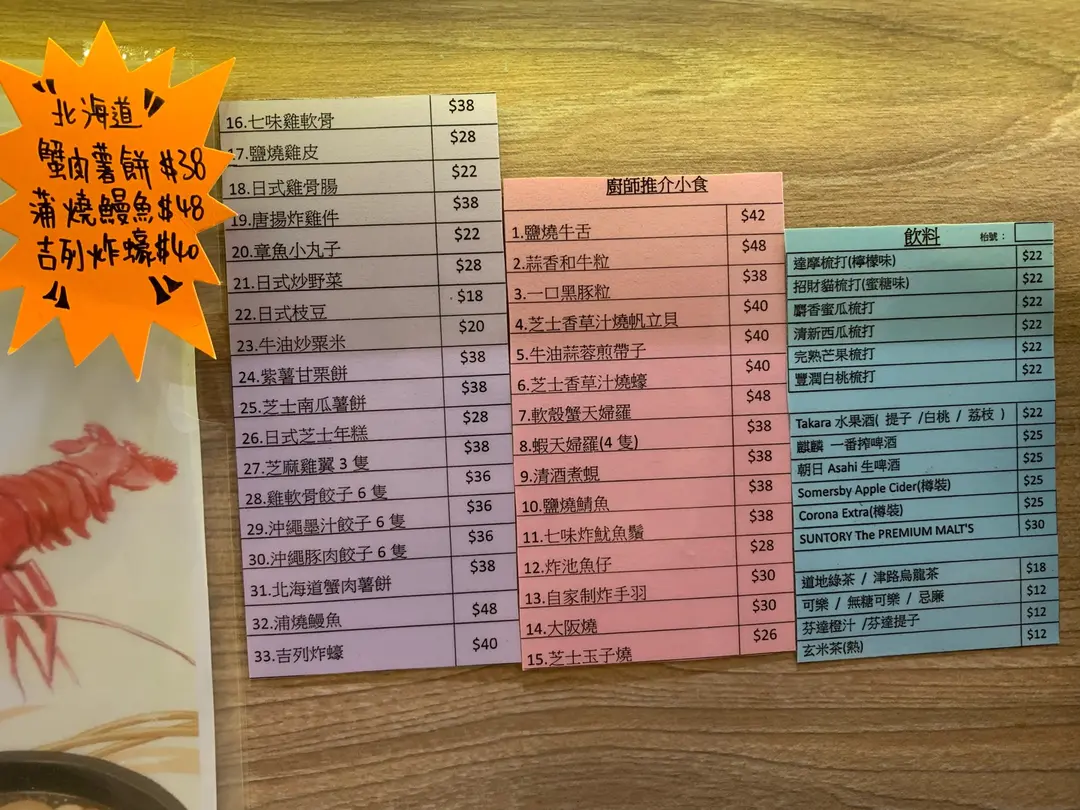 "北海道"
蟹肉薯餅 $38
蒲燒鰻魚$48
吉列炸蠔$40
16.七味雞軟骨 $38
17.鹽燒雞皮 $28
18.日式雞骨腸 $22
19.唐揚炸雞件 $38
20.章魚小丸子 $22
21.日式炒野菜 $28
22.日式枝豆 $18
23.牛油炒粟米 $20
24.紫薯甘栗餅 $38
25.芝士南瓜薯餅 $38
26.日式芝士年糕 $28
27.芝麻雞翼 3 隻 $38
28.雞軟骨餃子 6 隻 $36
29.沖繩墨汁餃子 6 隻 $36
30.沖繩豚肉餃子 6 隻 $36
31.北海道蟹肉薯餅 $38
32.浦燒鰻魚 $48
33.吉列炸蠔 $40
廚師推介小食
1.鹽燒牛舌 $42
2.蒜香和牛粒 $48
3.一口黑豚粒 $38
4.芝士香草汁燒帆立貝 $40
5.牛油蒜蓉煎帶子 $40
6.芝士香草汁燒蠔 $40
7.軟殼蟹天婦羅 $48
8.蝦天婦羅(4 隻) $38
9.清酒煮蜆 $38
10.鹽燒鯖魚 $38
11.七味炸魷魚鬚 $38
12.炸池魚仔 $28
13.自家制炸手羽 $30
14.大阪燒 $30
15.芝士玉子燒 $26
飲料 枱號：
達摩梳打(檸檬味) $22
招財貓梳打(蜜糖味) $22
麝香蜜瓜梳打 $22
清新西瓜梳打 $22
完熟芒果梳打 $22
豐潤白桃梳打 $22
Takara 水果酒( 提子 /白桃 / 荔枝 ) $22
麒麟 一番搾啤酒 $25
朝日 Asahi 生啤酒 $25
Somersby Apple Cider(樽裝) $25
Corona Extra(樽裝) $25
SUNTORY The PREMIUM MALT'S $30
道地綠茶 / 津路烏龍茶 $18
可樂 / 無糖可樂 / 忌廉 $12
芬達橙汁 /芬達提子 $12
玄米茶(熱) $12